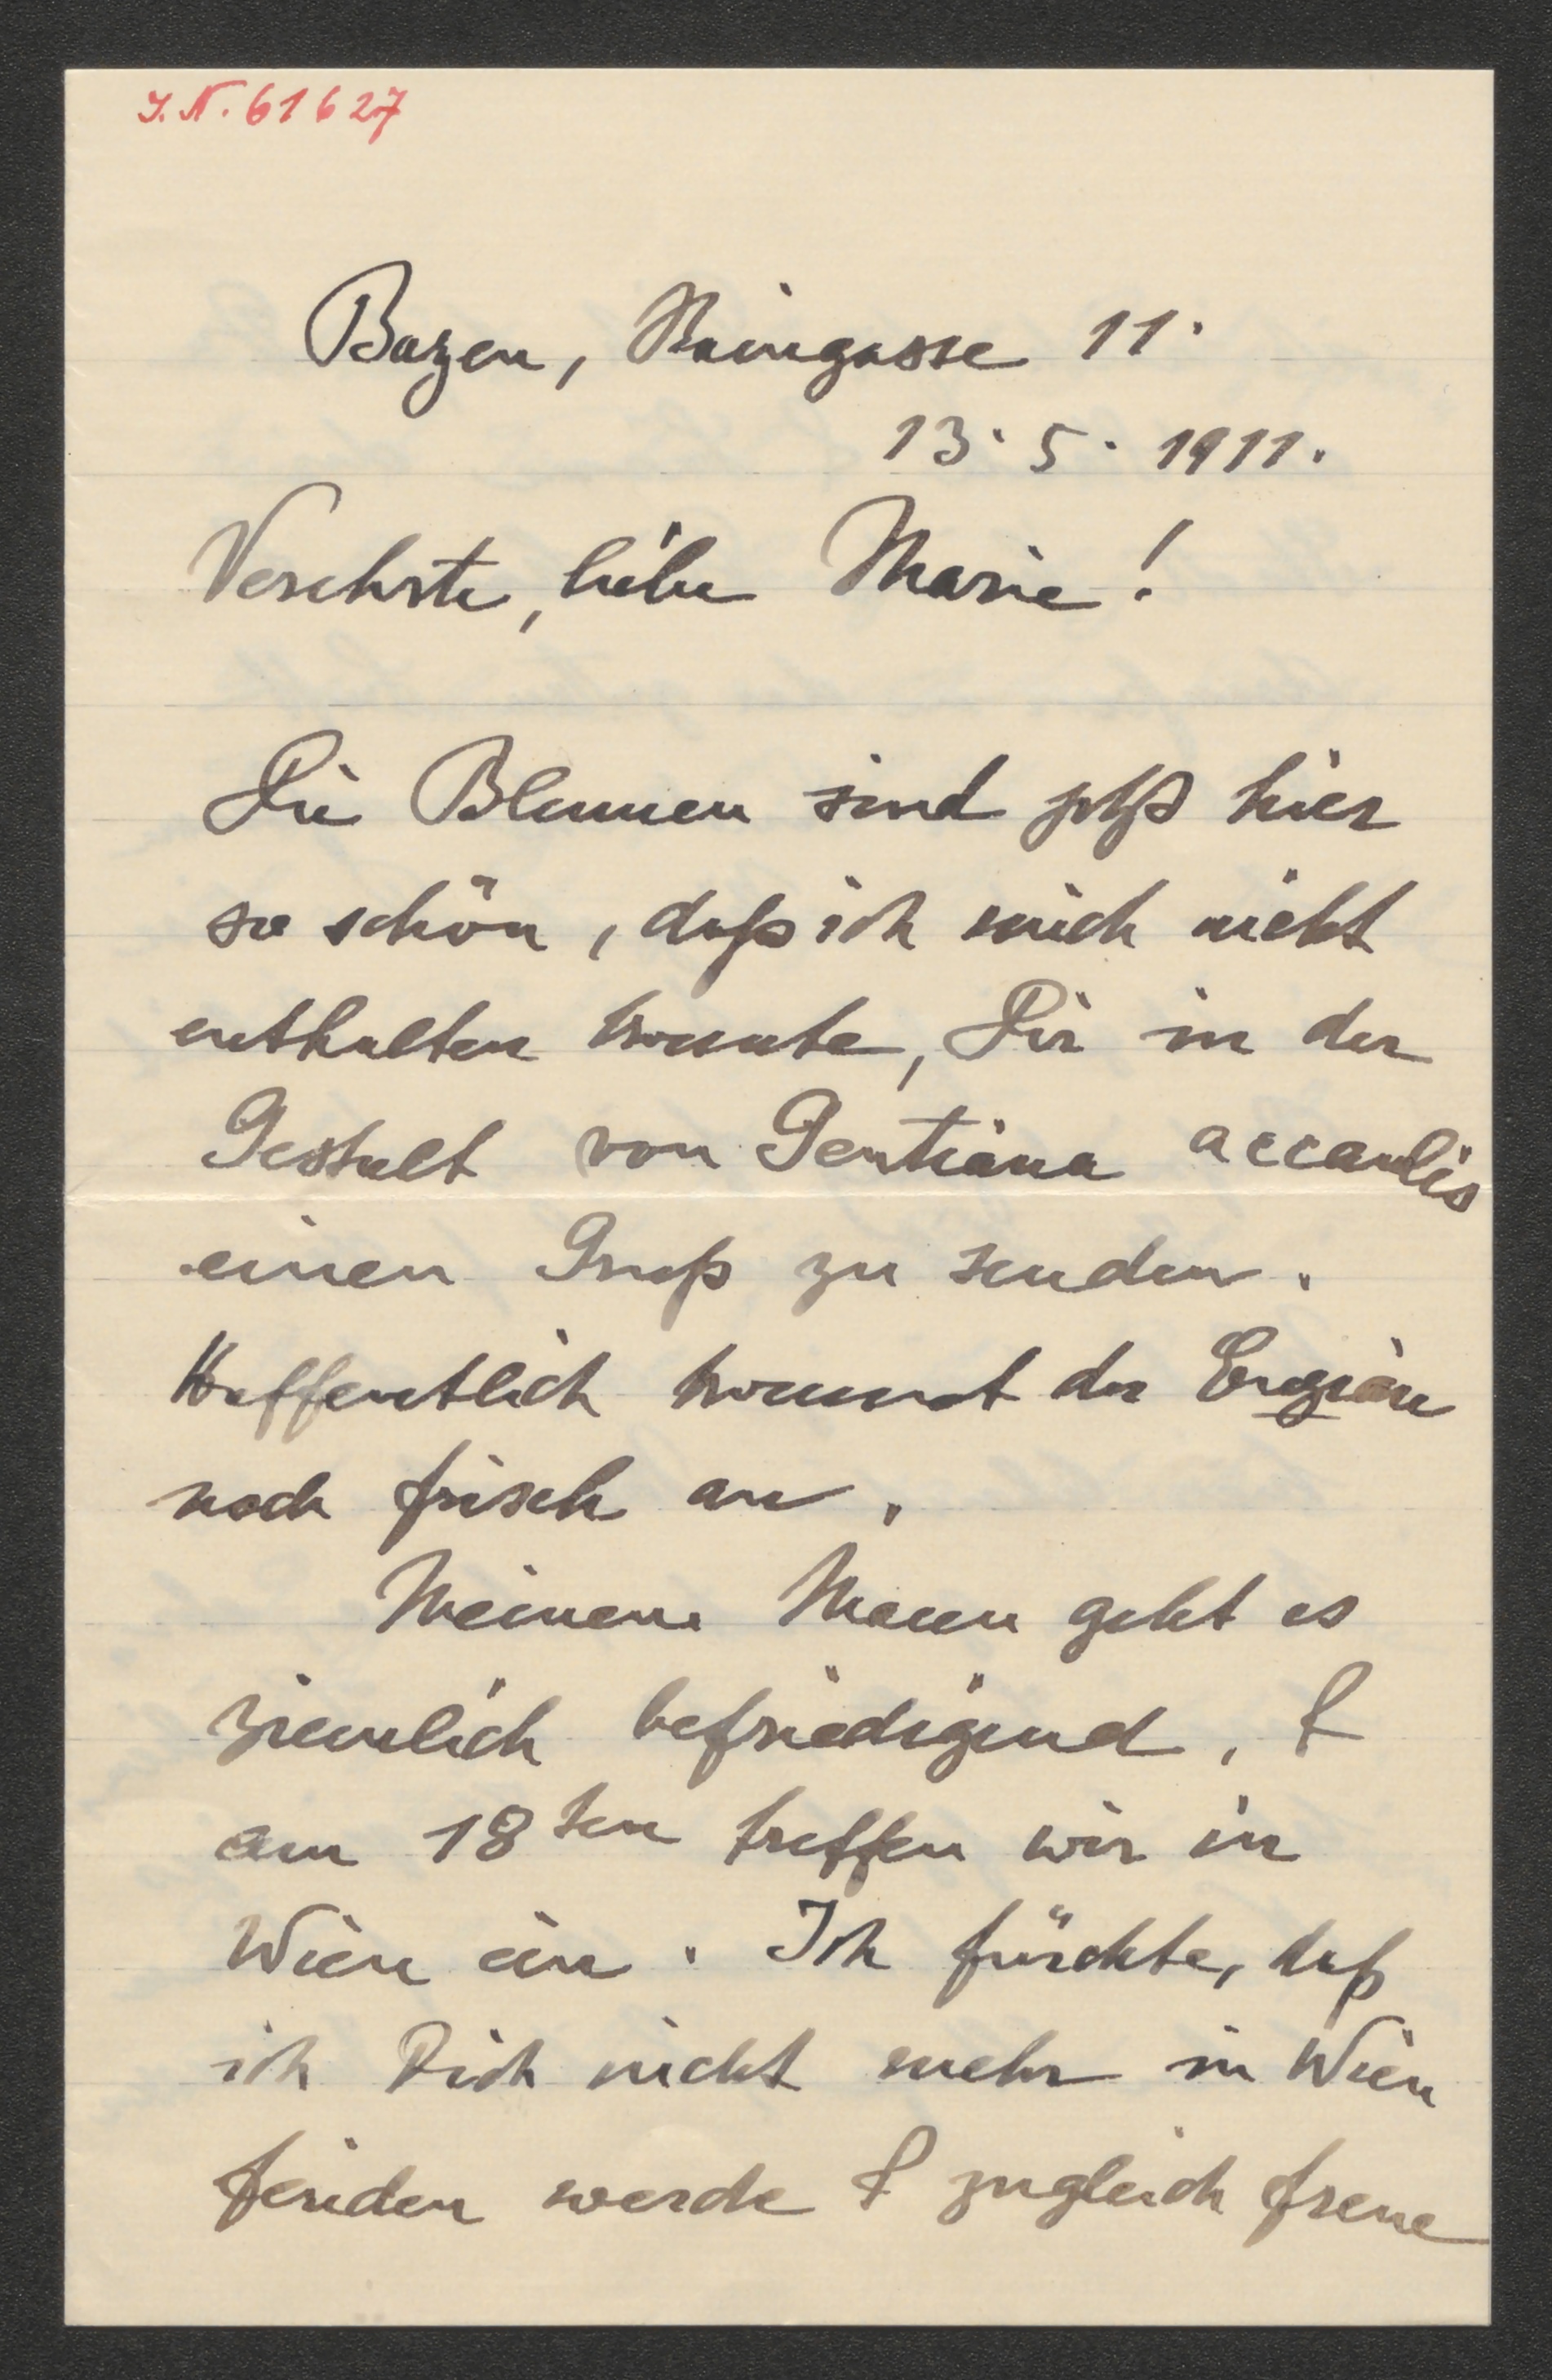 J.N. 61627
Bozen, Raingasse 11.
13. 5. 1911.
Verehrte, liebe Marie!
Die Blumen sind jetzt hier
so schön, daß ich mich nicht
enthalten konnte, Dir in der
Gestalt von Gentiana accaulis
einen Gruß zu senden.
Hoffentlich kommt der Enzian
noch frisch an.
Meinem Mann geht es
ziemlich befriedigend, &
am 18ten treffen wir in
Wien ein. Ich fürchte, daß
ich Dich nicht mehr in Wien
finden werde & zugleich freue